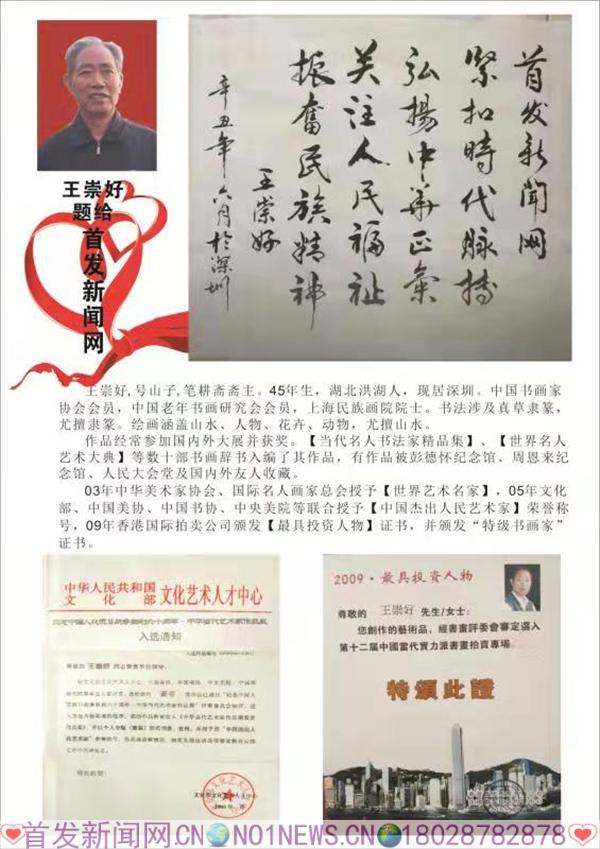 首发新闻网
緊扣時代脈搏
弘揚中華正氣
关注人民福祉
振奮民族精神
王崇好
辛丑年六月於深圳
王崇好
题给
首发新闻网
王崇好,号山子,笔耕斋斋主。45年生，湖北洪湖人，现居深圳。中国书画家
协会会员，中国老年书画研究会会员，上海民族画院院士。书法涉及真草隶篆，
尤擅隶篆。绘画涵盖山水、人物、花卉、动物，尤擅山水。
作品经常参加国内外大展并获奖。【当代名人书法家精品集】、【世界名人
艺术大典】等数十部书画辞书入编了其作品，有作品被彭德怀纪念馆、周恩来纪
念馆、人民大会堂及国内外友人收藏。
03年中华美术家协会、国际名人画家总会授予【世界艺术名家】，05年文化
部、中国美协、中国书协、中央美院等联合授予【中国杰出人民艺术家】荣誉称
号，09年香港国际拍卖公司颁发【最具投资人物】证书，并颁发“特级书画家”
证书。
中华人民共和国
文化部 文化艺术人才中心
入选通知
2009·最具投资人物
尊敬的 王崇好 先生/女士：
您創作的藝術品，經書畫評委會審定選入
第十二届中國當代實力派書畫拍賣專場。
特頒此證
首发新闻网.CN NO1NEWS.CN 18028782878